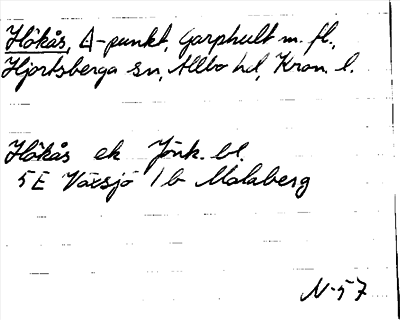 Hökås, Δ-punkt, Garphult m. fl.,
Hjortsberga sn, Allbo hd, Kron. l.
Hökås ek Jönk. bl.
5E Växsjö 1b Malaberg
N-57